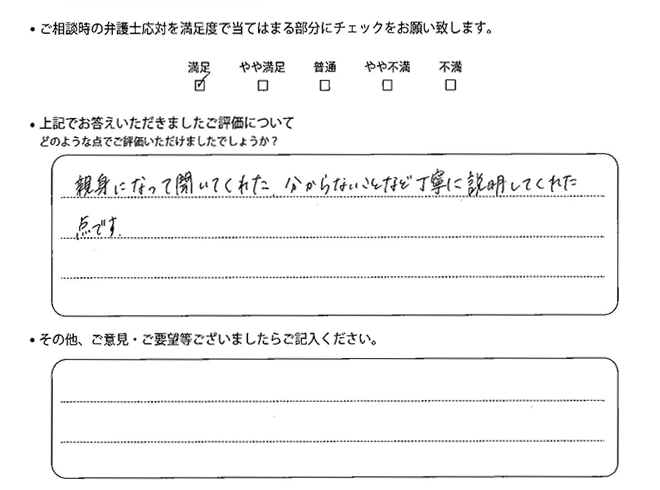 • ご相談時の弁護士応対を満足度で当てはまる部分にチェックをお願い致します。
満足 やや満足 普通 やや不満 不満
☑ □ □ □ □
• 上記でお答えいただきましたご評価について
どのような点でご評価いただけましたでしょうか？
親身になって聞いてくれた、分からないことなど丁寧に説明してくれた
点です.
• その他、ご意見・ご要望等ございましたらご記入ください。